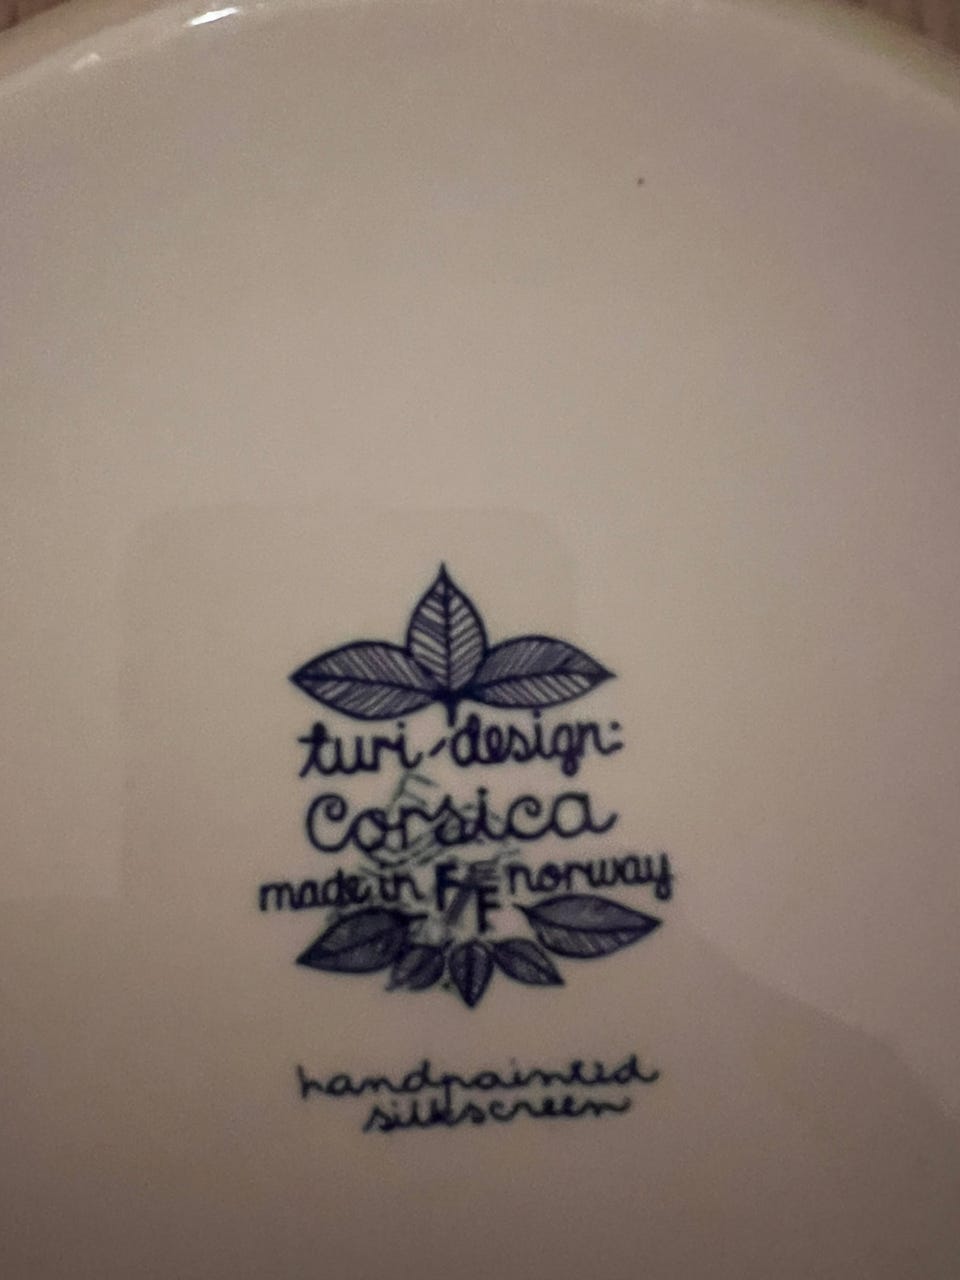 turi-design:
Corsica
made in FF norway
handpainted
silkscreen